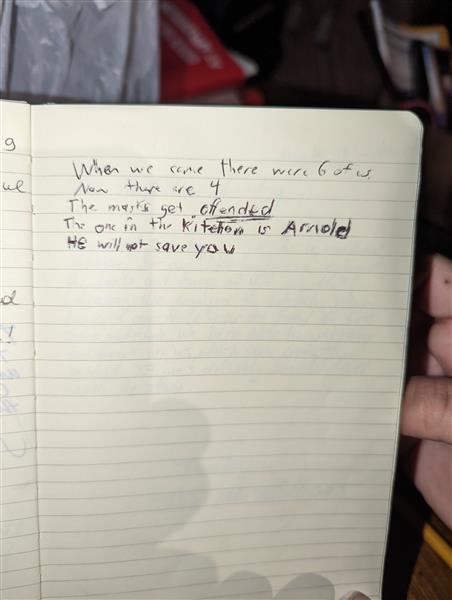 When we came there were 6 of us.
Now there are 4
The masks get offended
The one in the Kitchen is Arnold
HE will not save you
g